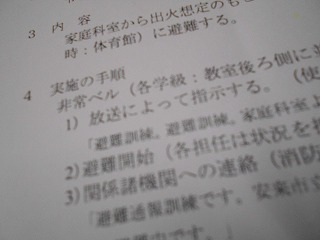 3 内 容
家庭科室から出火想定のも
時：体育館）に避難する。
4 実施の手順
非常ベル（各学級：教室後ろ側に
1）放送によって指示する。（使
「避難訓練。避難訓練。家庭科室よ
2)避難開始（各担任は状況を
3)関係諸機関への連絡（消防
「避難通報訓練です。安来市立